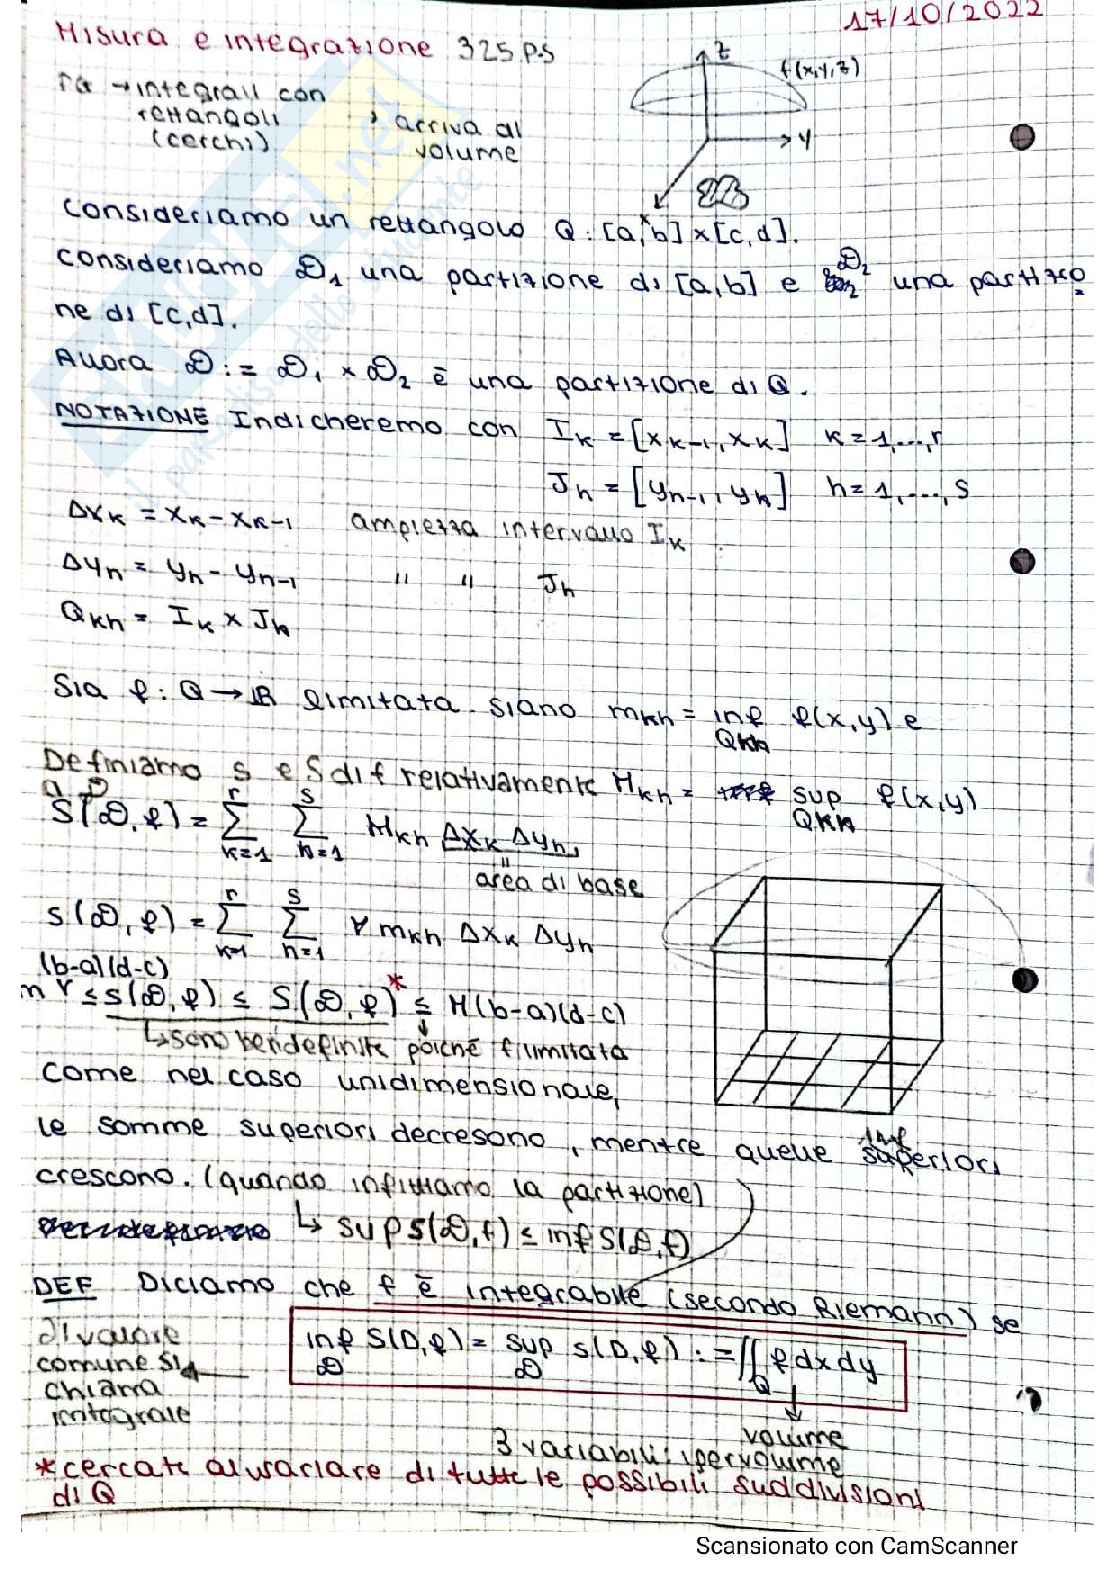 17/10/2022
Misura e integrazione 325 p.s
→ integrali con
rettangoli
(cerchi)
arriva al
volume
z
f(x,y,z)
y
x
Consideriamo un rettangolo Q: [a,b]×[c,d].
consideriamo 𝒟₁ una partizione di [a,b] e 𝒟₂ una partizio
ne di [c,d].
Allora 𝒟 := 𝒟₁ × 𝒟₂ è una partizione di Q.
NOTAZIONE Indicheremo con I_k = [x_{k-1}, x_k] k=1,...,r
J_h = [y_{h-1}, y_h] h=1,...,s
Δx_k = x_k - x_{k-1} ampiezza intervallo I_k
Δy_h = y_h - y_{h-1} " " J_h
Q_{kh} = I_k × J_h
Sia f: Q → ℝ limitata. siano m_{kh} = inf_{Q_{kh}} f(x,y) e
Definiamo s e S di f relativamente M_{kh} = sup_{Q_{kh}} f(x,y)
a 𝒟
S(𝒟,f) = Σ_{k=1}^{r} Σ_{h=1}^{s} M_{kh} Δx_k Δy_h
"
area di base
s(𝒟,f) = Σ_{k=1}^{r} Σ_{h=1}^{s} m_{kh} Δx_k Δy_h
(b-a)(d-c)
m ≤ s(𝒟,f) ≤ S(𝒟,f)* ≤ M(b-a)(d-c)
↳ sono ben definite poiché f limitata
Come nel caso unidimensionale,
le somme superiori decresono, mentre quelle inf
superiori
crescono. (quando infittiamo la partizione)
↳ sup s(𝒟,f) ≤ inf S(𝒟,f)
DEF Diciamo che f è integrabile (secondo Riemann) se
inf_𝒟 S(D,f) = sup_𝒟 s(D,f) := ∬_Q f dx dy
Il valore
comune si
chiama
integrale
volume
3 variabili: ipervolume
* cercati al variare di tutte le possibili suddivisioni
di Q
Scansionato con CamScanner